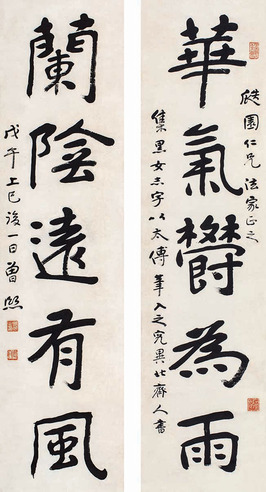 華氣欝為雨
園仁兄法家正之
集黑女志字以太傅筆入之究異北齊人書
蘭陰遠有風
戊午上巳後一日曾熙